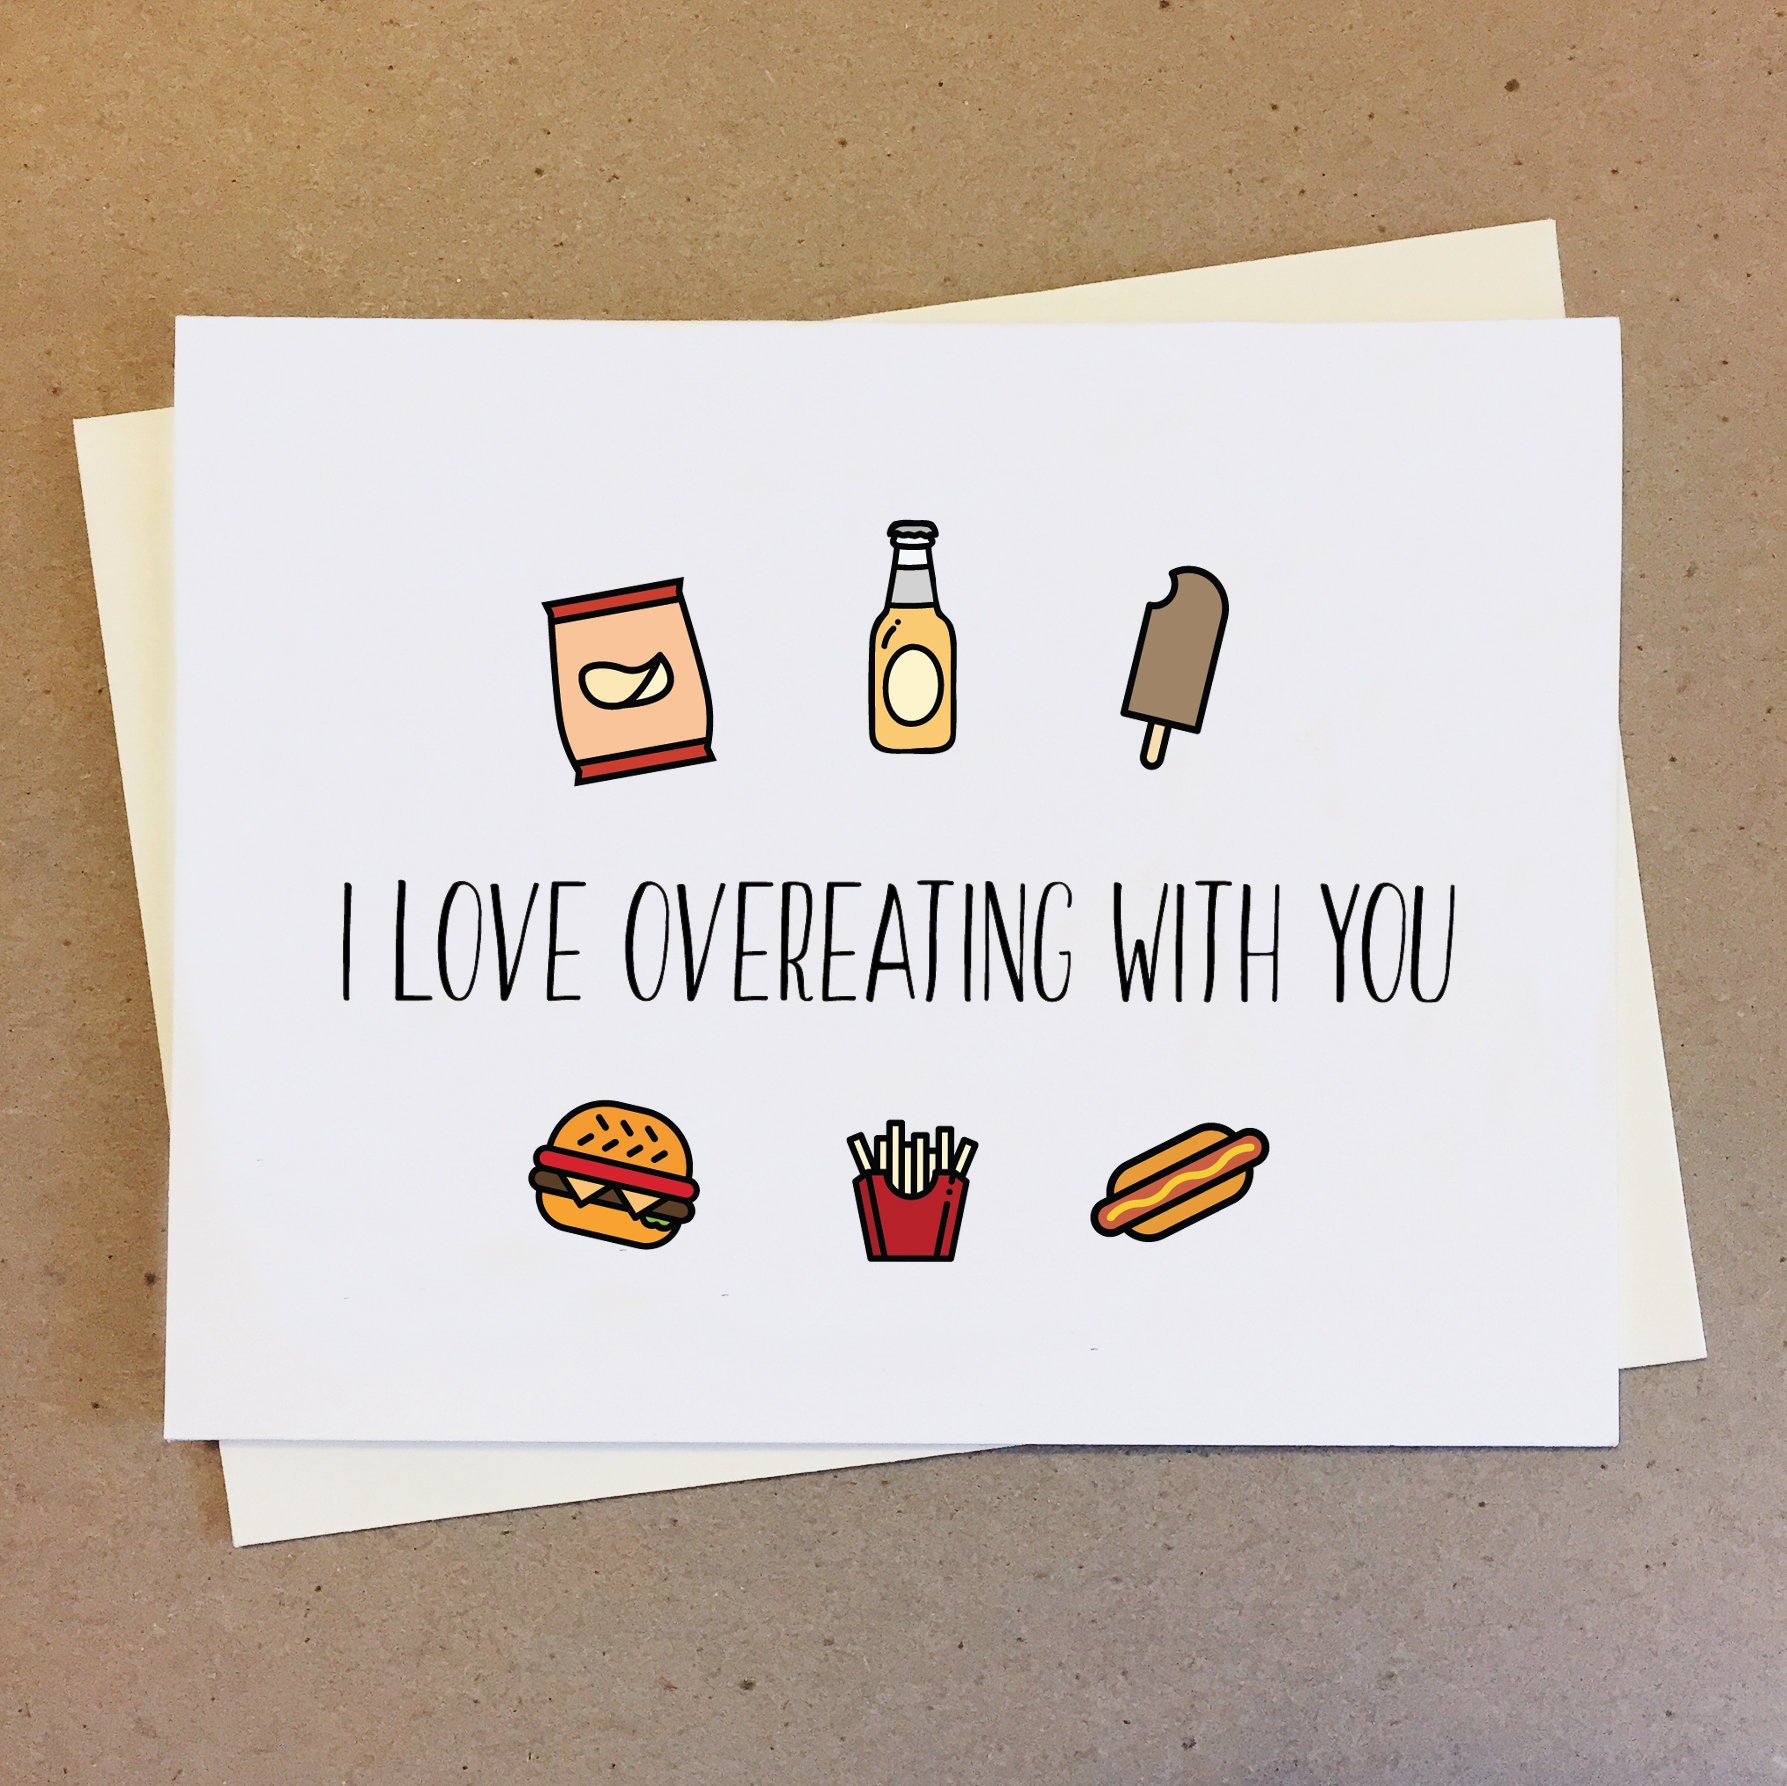 I LOVE OVEREATING WITH YOU